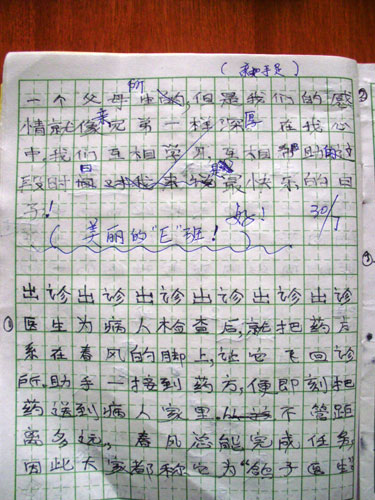 (亲如手足)
所
一个父母生的,但是我们的感
情就像亲兄弟一样深厚。在我心
中,我们互相学习,互相帮助的这
段时日 是最快乐的日
子!
好! 30/7
(美丽的"E"班!)
出诊出诊出诊出诊出诊出诊出诊
①医生为病人检查后,就把药方
系在春风的脚上,让它飞回诊
所。助手一接到药方,便即刻把
药送到病人家里。不管距
离多远,春风总能完成任务,
因此大家都称它为"鸽子医生"